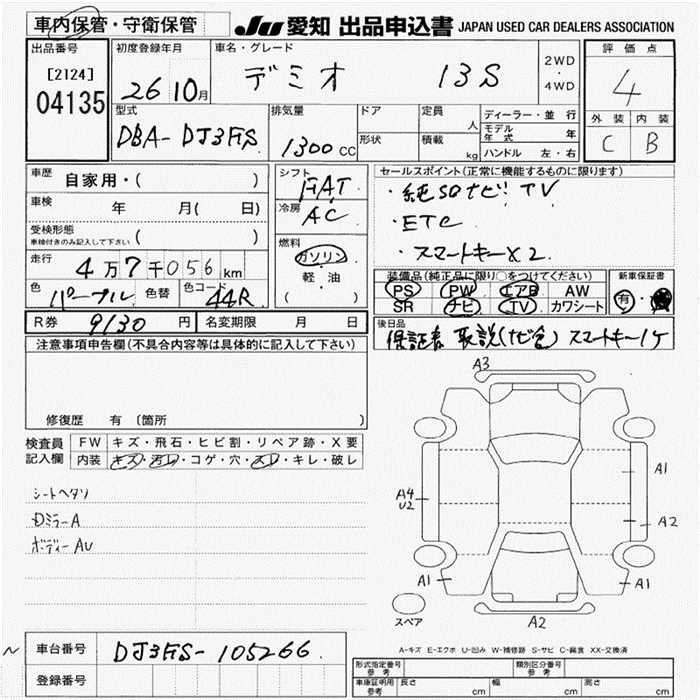 車内保管・守衛保管
JU 愛知 出品申込書 JAPAN USED CAR DEALERS ASSOCIATION
出品番号 初度登録年月 車名・グレード 評価点
[2124] 26 10月 デミオ 13S 2WD・4WD 4
04135
型式 排気量 ドア 定員 人 ディーラー・並行 外装 内装
DBA-DJ3FS 1300cc 形状 積載 kg モデル年式 年 C B
ハンドル 左・右
車歴 自家用・( ) シフト FAT セールスポイント(正常に機能するものに限ります)
車検 年 月( 日) 冷房 AC ・純SDナビ! TV
受検形態 ( ) ・ETC
車検付きのみ記入して下さい
燃料 ガソリン 軽・油 ( ) ・スマートキー×2
走行 4万7千056km
色 パープル 色替 色コード 44R
装備品(純正品に限り○をつけてください) 新車保証書
PS PW エアB AW 有・
SR ナビ TV カワシート
R券 9130円 名変期限 月 日
後日品 保証書 取説(ナビ含) スマートキー1ケ
注意事項申告欄(不具合内容等は具体的に記入して下さい)
修復歴 有 〔箇所 〕
検査員記入欄 FW キズ・飛石・ヒビ割・リペア跡・X要
内装 キズ・汚レ・コゲ・穴・スレ・キレ・破レ
シートヘタリ
DミラーA
ボディーAU
A3
A1
A4
U2
A2
A1
A1
A2
スペア
A-キズ E-エクボ U-凹み W-補修跡 S-サビ C-腐食 XX-交換済
車台番号 DJ3FS-105266
登録番号
形式指定番号 参考 類別区分番号 参考
車庫証明用 参考 長さ cm 幅 cm 高さ cm